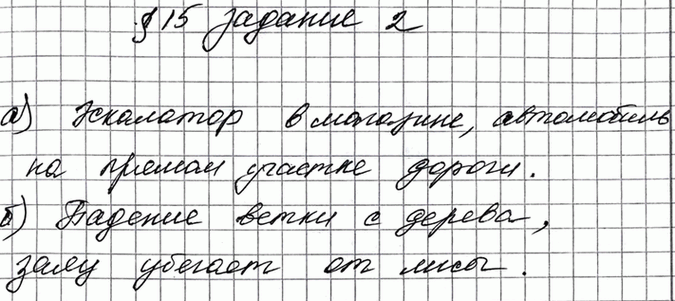 § 15 задание 2
а) Эскалатор в магазине, автомобиль
на прямом участке дороги.
б) Падение ветки с дерева,
заяц убегает от лисы.